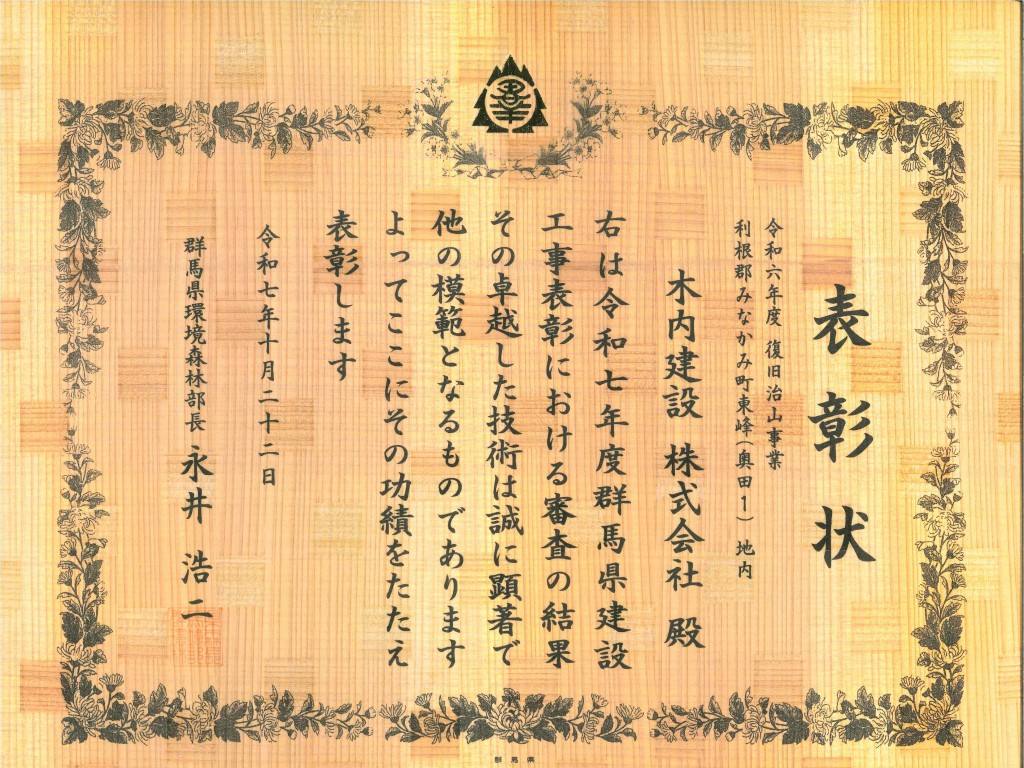 表彰状
令和六年度 復旧治山事業
利根郡みなかみ町東峰(奥田1) 地内
木内建設 株式会社 殿
右は令和七年度群馬県建設
工事表彰における審査の結果
その卓越した技術は誠に顕著で
他の模範となるものであります
よってここにその功績をたたえ
表彰します
令和七年十月二十二日
群馬県環境森林部長 永井 浩二
群馬県